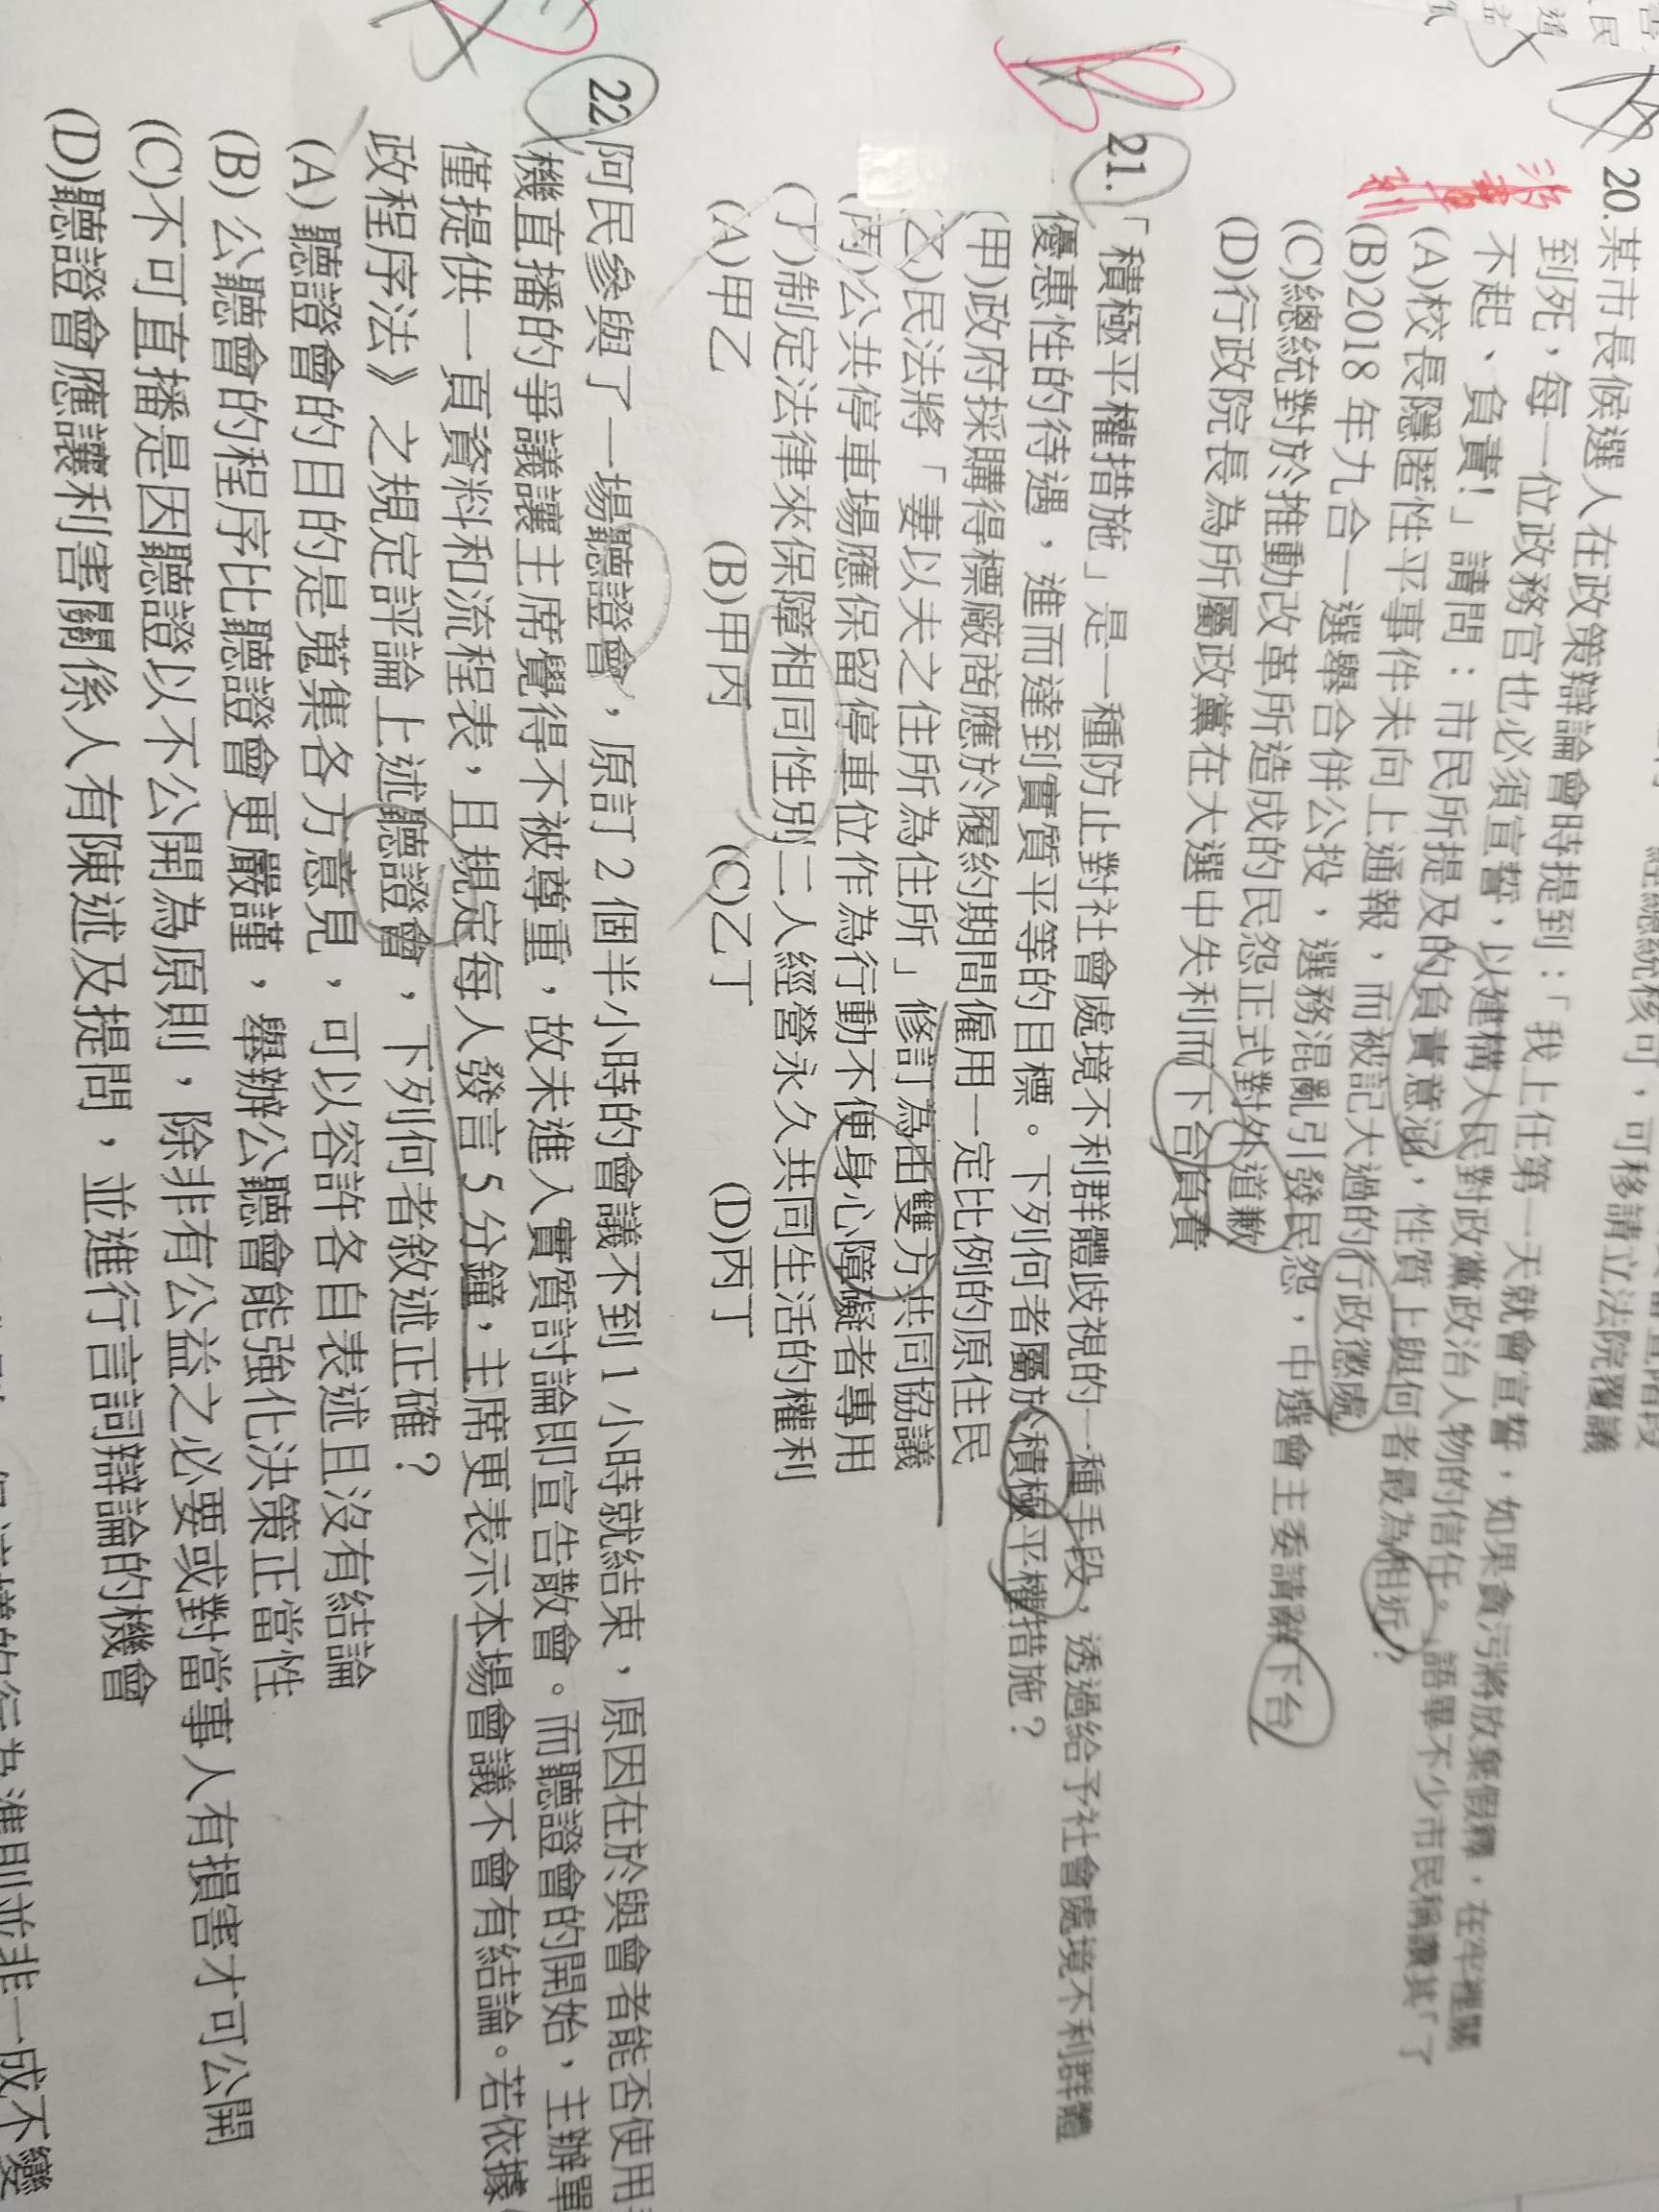 經總統核可，可移請立法院覆議
20.某市長候選人在政策辯論會時提到：「我上任第一天就會宣誓，如果貪污將放棄假釋，在牢裡關
到死，每一位政務官也必須宣誓，以建構人民對政黨政治人物的信任。」語畢不少市民稱讚其「了
不起、負責！」請問：市民所提及的負責意涵，性質上與何者最為相近？
(A)校長隱匿性平事件未向上通報，而被記大過的行政懲處
(B)2018 年九合一選舉合併公投，選務混亂引發民怨，中選會主委請辭下台
(C)總統對於推動改革所造成的民怨正式對外道歉
(D)行政院長為所屬政黨在大選中失利而下台負責
21.「積極平權措施」是一種防止對社會處境不利群體歧視的一種手段，透過給予社會處境不利群體
優惠性的待遇，進而達到實質平等的目標。下列何者屬於積極平權措施？
(甲)政府採購得標廠商應於履約期間僱用一定比例的原住民
(乙)民法將「妻以夫之住所為住所」修訂為由雙方共同協議
(丙)公共停車場應保留停車位作為行動不便身心障礙者專用
(丁)制定法律來保障相同性別二人經營永久共同生活的權利
(A)甲乙 (B)甲丙 (C)乙丁 (D)丙丁
22.阿民參與了一場聽證會，原訂 2 個半小時的會議不到 1 小時就結束，原因在於與會者能否使用
機直播的爭議讓主席覺得不被尊重，故未進入實質討論即宣告散會。而聽證會的開始，主辦單
僅提供一頁資料和流程表，且規定每人發言 5 分鐘，主席更表示本場會議不會有結論。若依據
政程序法》之規定評論上述聽證會，下列何者敘述正確？
(A)聽證會的目的是蒐集各方意見，可以容許各自表述且沒有結論
(B)公聽會的程序比聽證會更嚴謹，舉辦公聽會能強化決策正當性
(C)不可直播是因聽證以不公開為原則，除非有公益之必要或對當事人有損害才可公開
(D)聽證會應讓利害關係人有陳述及提問，並進行言詞辯論的機會